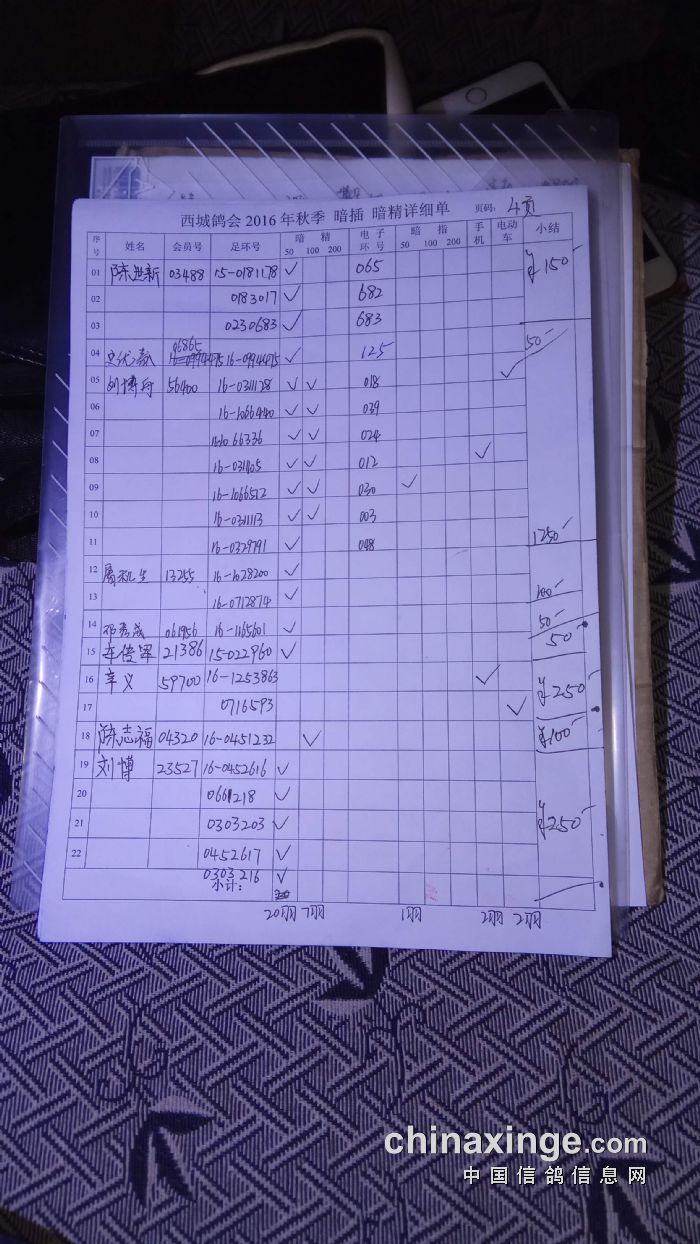 西城鸽会2016年秋季 暗插 暗精详细单 页码: 4页
序号 姓名 会员号 足环号 暗 精 50 100 200 电子环号 暗 指 50 100 200 手机 电动车 小结
01 陈进新 03488 15-0181178 ✓ 065 ¥150-
02 0183017 ✓ 682
03 0230683 ✓ 683
04 06865 16-0994495 ✓ 125 50-
05 刘博舟 56400 16-0311128 ✓ ✓ 018 ✓
06 16-1066440 ✓ ✓ 039
07 1066336 ✓ ✓ 024
08 ✓ ✓ 012 ✓
09 16-1066512 ✓ ✓ 030 ✓
10 16-0311113 ✓ ✓ 003
11 16-0329791 ✓ 048 1250-
12 13255 16-1028200 ✓
13 16-0712874 ✓ 100-
14 邓秀成 061956 16-1165601 ✓ 50-
15 21386 15-022960 ✓ 50-
16 辛义 59700 16-1253863 ✓ ¥250-
17 0716593 ✓
18 陈志福 04320 16-0451232 ✓ ¥100-
19 刘博 23527 16-0452616 ✓
20 0661218 ✓
21 0303203 ✓ ¥250-
22 0452617 ✓
0303216 ✓
小计:
20羽 7羽 1羽 2羽 2羽
chinaxinge.com
中国信鸽信息网